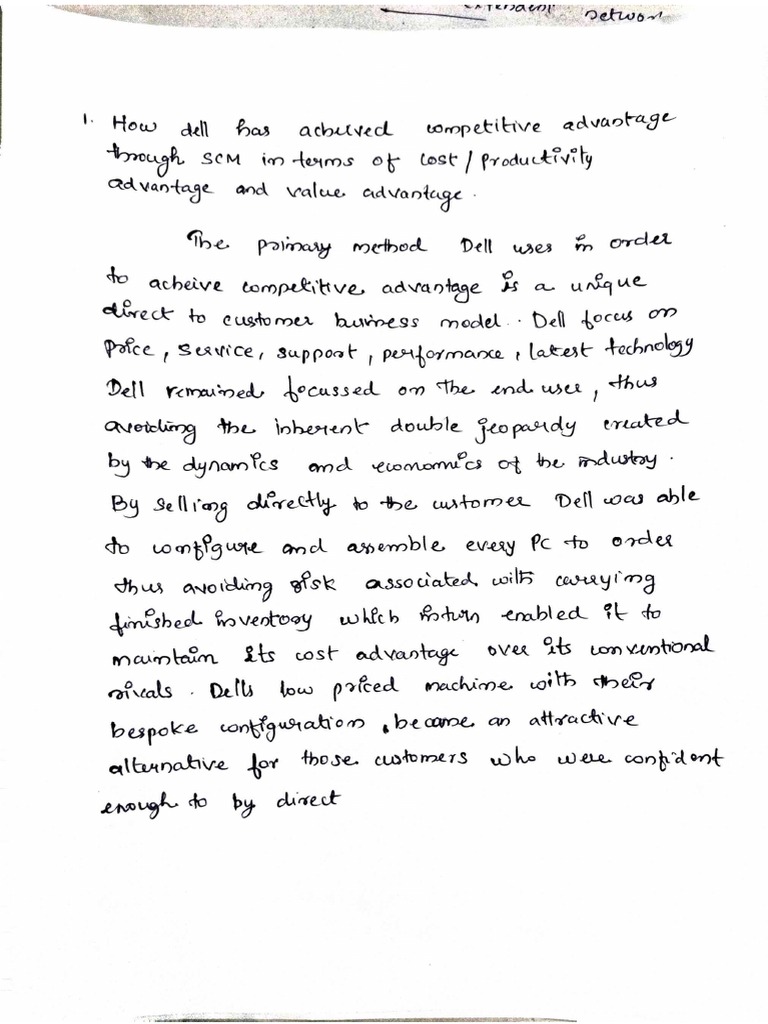 network
1. How dell has acheived competitive advantage
through SCM in terms of cost/productivity
advantage and value advantage.
The primary method Dell uses in order
to acheive competitive advantage is a unique
direct to customer business model. Dell focus on
Price, service, support, performance, latest technology
Dell remained focussed on the end user, thus
avoiding the inherent double jeopardy created
by the dynamics and economics of the industry.
By selling directly to the customer Dell was able
to configure and assemble every PC to order
thus avoiding risk associated with carrying
finished inventory which inturn enabled it to
maintain its cost advantage over its conventional
rivals. Dells low priced machine with their
bespoke configuration, became an attractive
alternative for those customers who were confident
enough to by direct